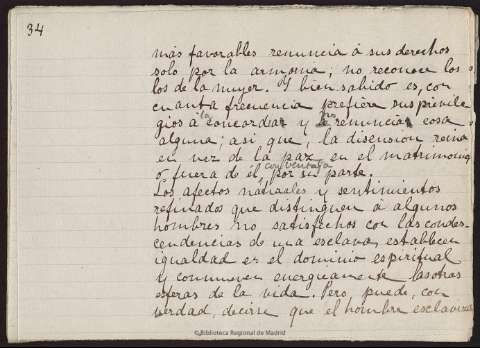 34
más favorables renuncia á sus derechos
solo por la armonia; no reconoce los
los de la muger. Y bien sabido es, con
cuanta frecuencia prefiere sus privile
gios á la concordia y no renuncia cosa
alguna; asi que, la disension reina
en vez de la paz, en el matrimonio
ó fuera de él, con ventaja por su parte.
Los afectos naturales y sentimientos
refinados que distinguen á algunos
hombres no satisfechos con las condes-
cendencias de una esclava, establecen
igualdad en el dominio espiritual
y conmueven energicamente las otras
esferas de la vida. Pero, puede, con
verdad, decirse que el hombre
©Biblioteca Regional de Madrid